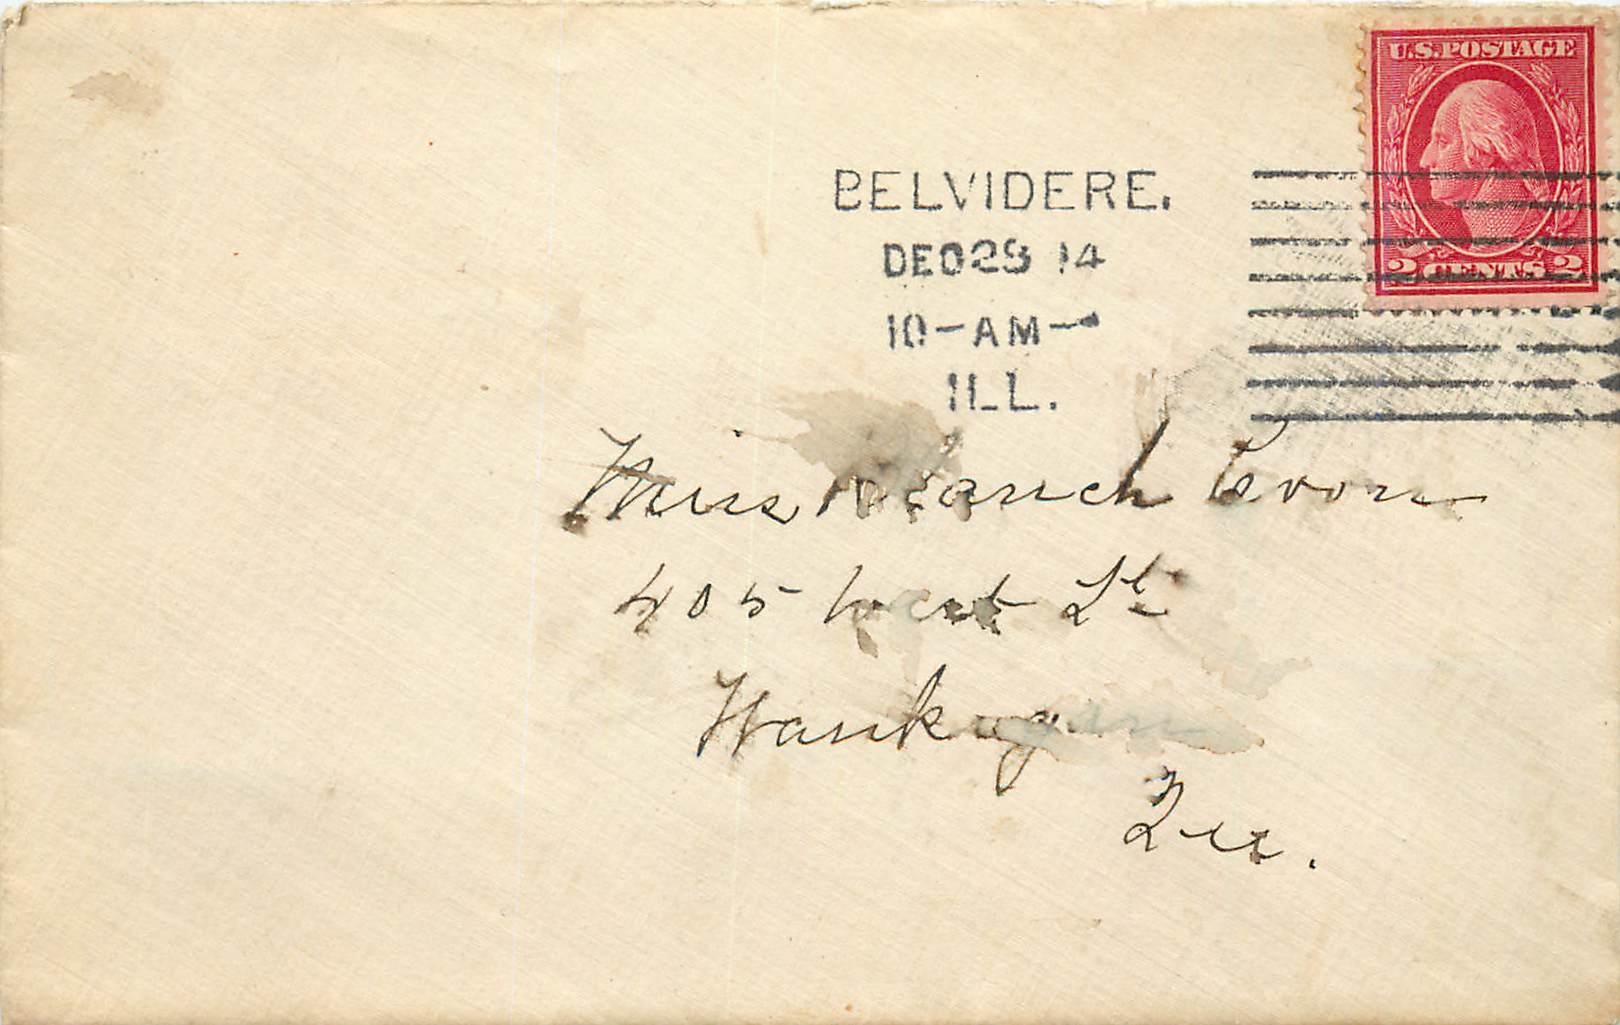 U.S. POSTAGE
2 CENTS 2
BELVIDERE.
DEC 28 14
10-AM-
ILL.
Miss Blanch Coon
405 West St
Waukegan
Ill.